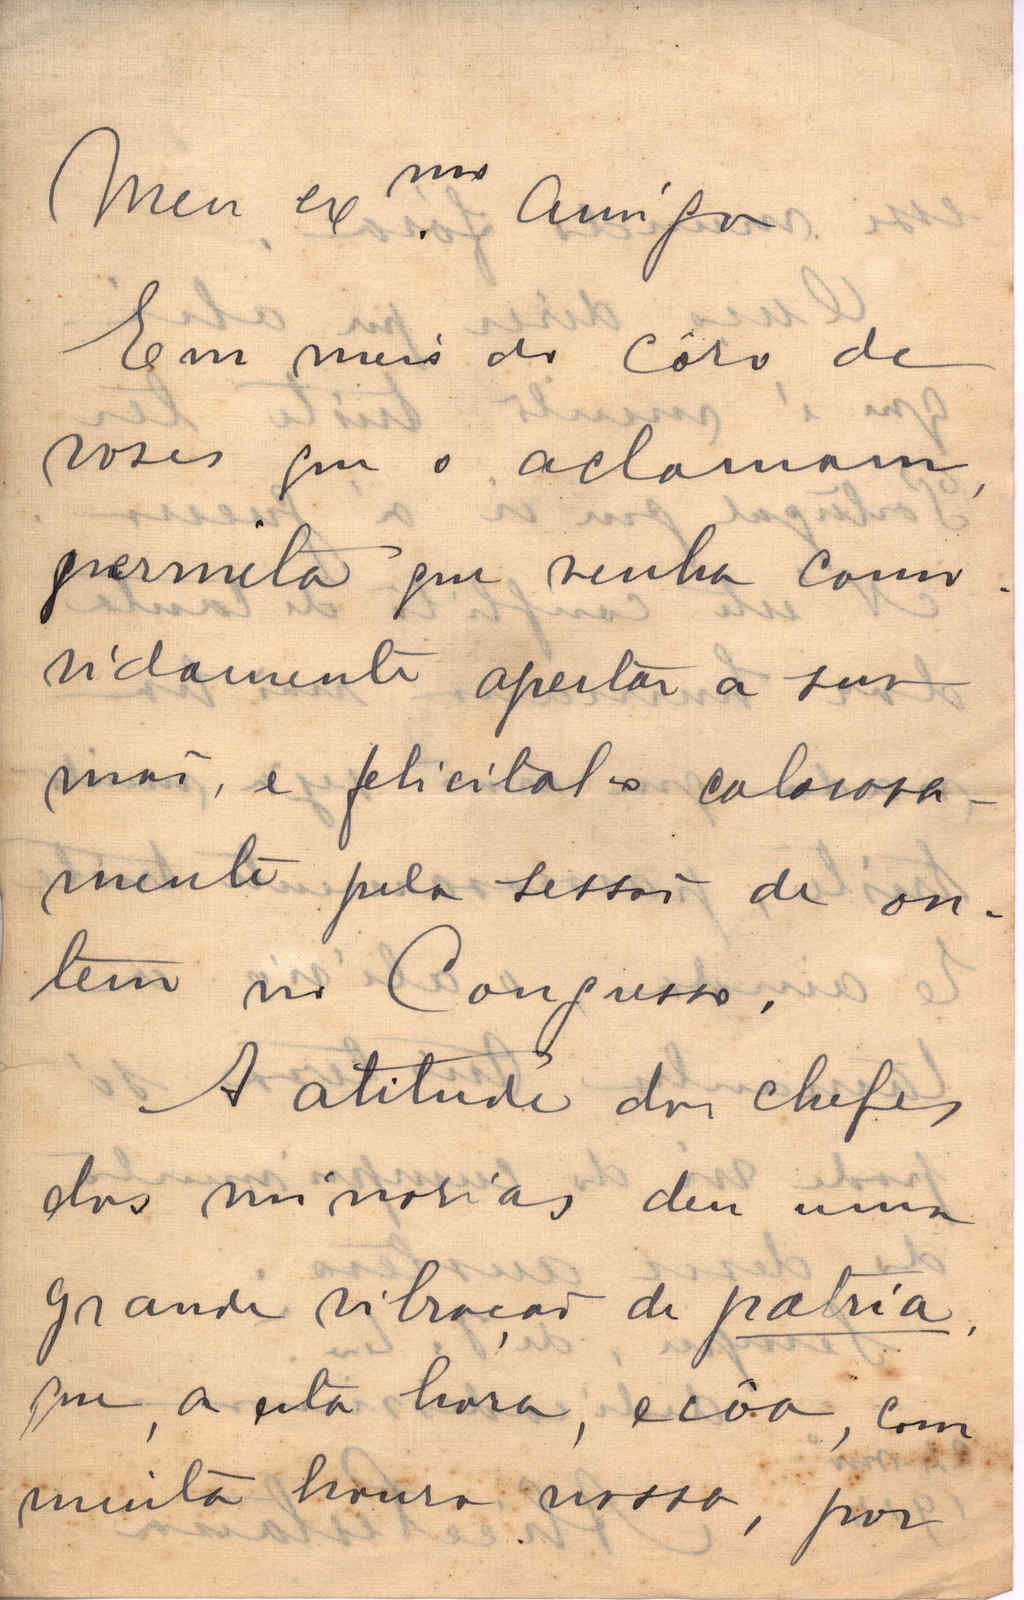 Meu ex.mo Amigo
Em meio do côro de
vozes que o aclamam,
permita que venha como-
vidamente apertar a sua
mão, e felicital-o calorosa-
mente pela sessão de on-
tem no Congresso.
A atitude dos chefes
das minorias deu uma
grande vibração de patria,
que, a esta hora, ecôa, com
muita honra nossa, por